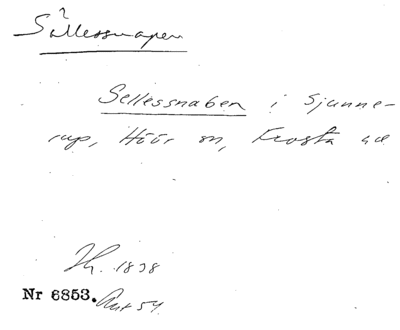 ?
Sällessnapen
Sellessnaben i Sjunne-
rup, Höör sn, Frosta hd
1838
Nr 6853. Avt 54.